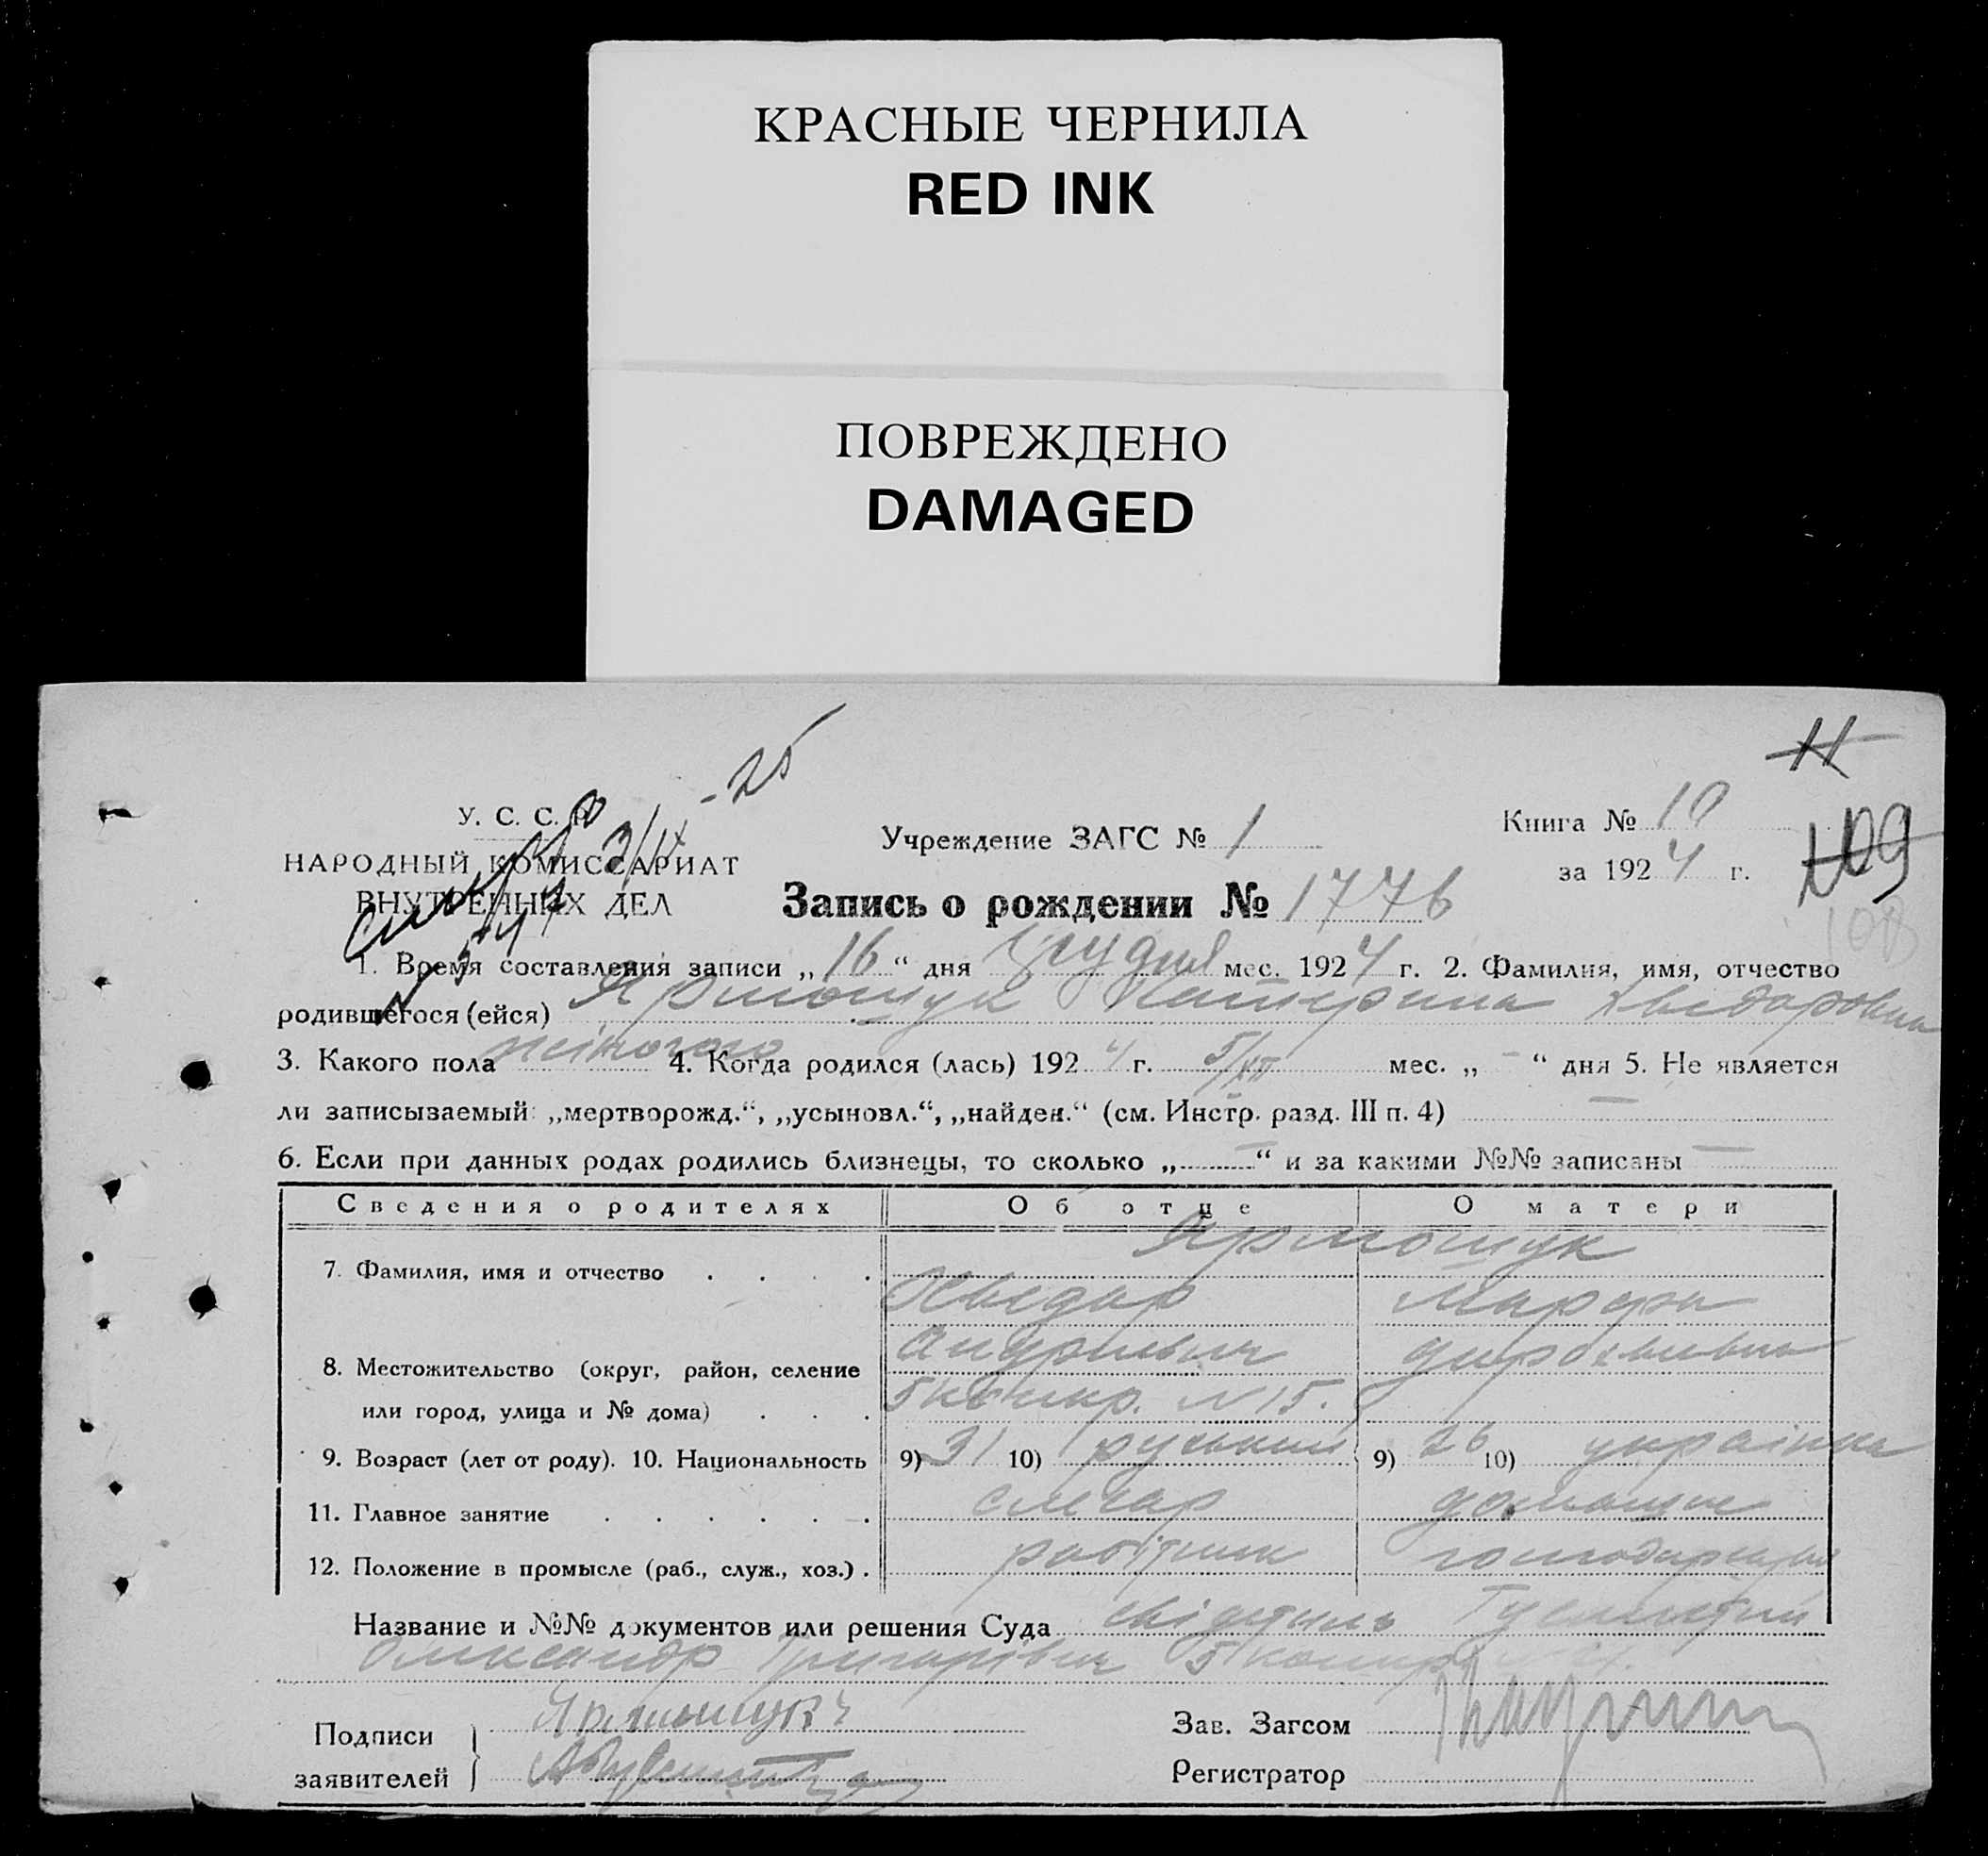 КРАСНЫЕ ЧЕРНИЛА
RED INK
ПОВРЕЖДЕНО
DAMAGED
11
- 25
У. С. С. Р.
Учреждение ЗАГС № 1
Книга № 10
НАРОДНЫЙ КОМИССАРИАТ
за 1924 г.
109
ВНУТРЕННИХ ДЕЛ
Запись о рождении № 1776
108
1. Время составления записи „ 16 “ дня грудня мес. 1924 г. 2. Фамилия, имя, отчество
родившегося (ейся) Ярмощук Катерина Хведоровна
3. Какого пола жіночого 4. Когда родился (лась) 1924 г. 5/XII мес. „ - “ дня 5. Не является
ли записываемый: „мертворожд.“, „усыновл.“, „найден.“ (см. Инстр. разд. III п. 4) —
6. Если при данных родах родились близнецы, то сколько „ — “ и за какими №№ записаны —
Сведения о родителях Об отце О матери
Ярмощук
7. Фамилия, имя и отчество
Хведор Марфа
8. Местожительство (округ, район, селение
или город, улица и № дома)
N 15.
9. Возраст (лет от роду). 10. Национальность 9) 31 10) руський 9) 26 10) українка
11. Главное занятие слюсар домашнє
12. Положение в промысле (раб., служ., хоз.) робітник господарство
Название и №№ документов или решения Суда свідетель
Олександр Григорівич 5
Подписи
заявителей
Ярмощук
Зав. Загсом
Регистратор